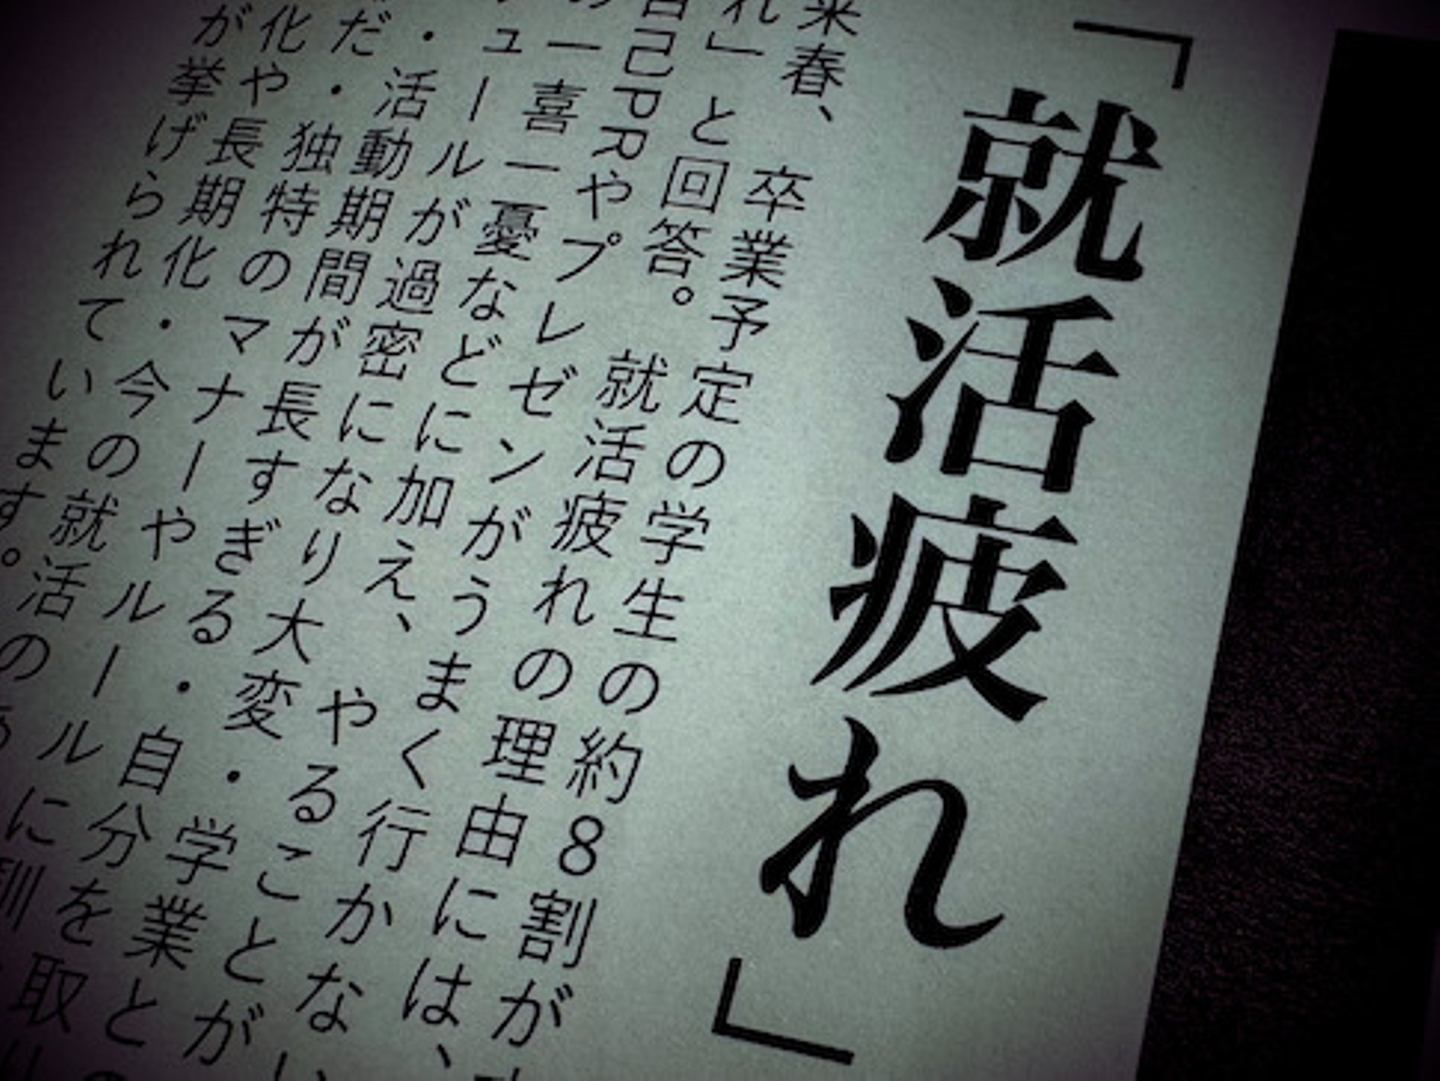 「就活疲れ」
来春、卒業予定の学生の約8割が
れ」と回答。就活疲れの理由には、
自己PRやプレゼンがうまく行かない
の一喜一憂などに加え、やることが
ュールが過密になり大変・学業との
・活動期間が長すぎる・自分を取り
だ・独特のマナーやルールに馴
化や長期化・今の就活のあ
が挙げられています。